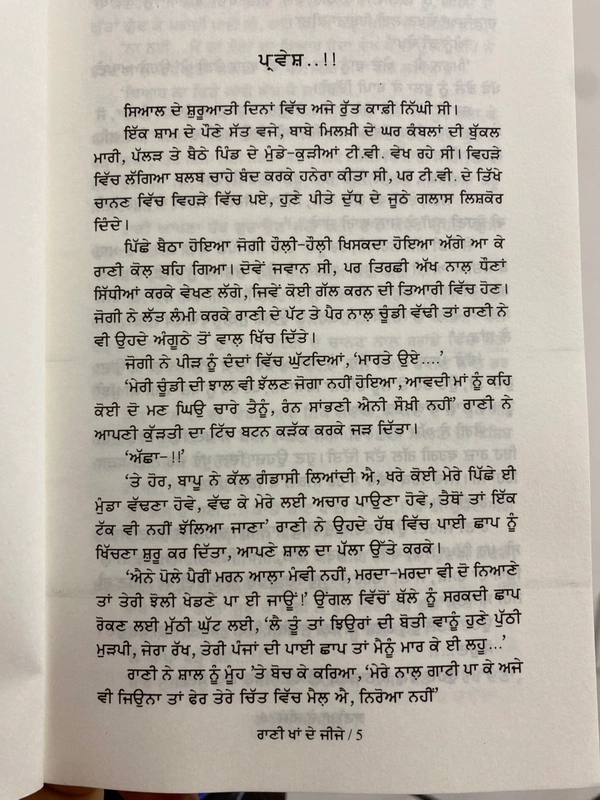 ਪ੍ਰਵੇਸ਼..!!
ਸਿਆਲ ਦੇ ਸ਼ੁਰੂਆਤੀ ਦਿਨਾਂ ਵਿੱਚ ਅਜੇ ਰੁੱਤ ਕਾਫ਼ੀ ਨਿੱਘੀ ਸੀ।
ਇੱਕ ਸ਼ਾਮ ਦੇ ਪੌਣੇ ਸੱਤ ਵਜੇ, ਬਾਬੇ ਮਿਲਖੀ ਦੇ ਘਰ ਕੰਬਲਾਂ ਦੀ ਬੁੱਕਲ
ਮਾਰੀ, ਪੱਲੜ ਤੇ ਬੈਠੇ ਪਿੰਡ ਦੇ ਮੁੰਡੇ-ਕੁੜੀਆਂ ਟੀ.ਵੀ. ਵੇਖ ਰਹੇ ਸੀ। ਵਿਹੜੇ
ਵਿੱਚ ਲੱਗਿਆ ਬਲਬ ਚਾਹੇ ਬੰਦ ਕਰਕੇ ਹਨੇਰਾ ਕੀਤਾ ਸੀ, ਪਰ ਟੀ.ਵੀ. ਦੇ ਤਿੱਖੇ
ਚਾਨਣ ਵਿੱਚ ਵਿਹੜੇ ਵਿੱਚ ਪਏ, ਹੁਣੇ ਪੀਤੇ ਦੁੱਧ ਦੇ ਜੂਠੇ ਗਲਾਸ ਲਿਸ਼ਕੋਰ
ਦਿੰਦੇ।
ਪਿੱਛੇ ਬੈਠਾ ਹੋਇਆ ਜੋਗੀ ਹੌਲ਼ੀ-ਹੌਲ਼ੀ ਖਿਸਕਦਾ ਹੋਇਆ ਅੱਗੇ ਆ ਕੇ
ਰਾਣੀ ਕੋਲ਼ ਬਹਿ ਗਿਆ। ਦੋਵੇਂ ਜਵਾਨ ਸੀ, ਪਰ ਤਿਰਛੀ ਅੱਖ ਨਾਲ਼ ਧੌਣਾਂ
ਸਿੱਧੀਆਂ ਕਰਕੇ ਵੇਖਣ ਲੱਗੇ, ਜਿਵੇਂ ਕੋਈ ਗੱਲ ਕਰਨ ਦੀ ਤਿਆਰੀ ਵਿੱਚ ਹੋਣ।
ਜੋਗੀ ਨੇ ਲੱਤ ਲੰਮੀ ਕਰਕੇ ਰਾਣੀ ਦੇ ਪੱਟ ਤੇ ਪੈਰ ਨਾਲ਼ ਚੂੰਡੀ ਵੱਢੀ ਤਾਂ ਰਾਣੀ ਨੇ
ਵੀ ਉਹਦੇ ਅੰਗੂਠੇ ਤੋਂ ਵਾਲ਼ ਖਿੱਚ ਦਿੱਤੇ।
ਜੋਗੀ ਨੇ ਪੀੜ ਨੂੰ ਦੰਦਾਂ ਵਿੱਚ ਘੁੱਟਦਿਆਂ, ‘ਮਾਰਤੇ ਉਏ....’
‘ਮੇਰੀ ਚੂੰਡੀ ਦੀ ਝਾਲ ਵੀ ਝੱਲਣ ਜੋਗਾ ਨਹੀਂ ਹੋਇਆ, ਆਵਦੀ ਮਾਂ ਨੂੰ ਕਹਿ
ਕੋਈ ਦੋ ਮਣ ਘਿਉ ਚਾਰੇ ਤੈਨੂੰ, ਰੰਨ ਸਾਂਭਣੀ ਐਨੀ ਸੌਖੀ ਨਹੀਂ’ ਰਾਣੀ ਨੇ
ਆਪਣੀ ਕੁੱੜਤੀ ਦਾ ਟਿੱਚ ਬਟਨ ਕੜੱਕ ਕਰਕੇ ਜੜ ਦਿੱਤਾ।
‘ਅੱਛਾ-!!’
‘ਤੇ ਹੋਰ, ਬਾਪੂ ਨੇ ਕੱਲ ਗੰਡਾਸੀ ਲਿਆਂਦੀ ਐ, ਖਰੇ ਕੋਈ ਮੇਰੇ ਪਿੱਛੇ ਈ
ਮੁੰਡਾ ਵੱਢਣਾ ਹੋਵੇ, ਵੱਢ ਕੇ ਮੇਰੇ ਲਈ ਅਚਾਰ ਪਾਉਣਾ ਹੋਵੇ, ਤੈਥੋਂ ਤਾਂ ਇੱਕ
ਟੱਕ ਵੀ ਨਹੀਂ ਝੱਲਿਆ ਜਾਣਾ’ ਰਾਣੀ ਨੇ ਉਹਦੇ ਹੱਥ ਵਿੱਚ ਪਾਈ ਛਾਪ ਨੂੰ
ਖਿੱਚਣਾ ਸ਼ੁਰੂ ਕਰ ਦਿੱਤਾ, ਆਪਣੇ ਸ਼ਾਲ ਦਾ ਪੱਲਾ ਉੱਤੇ ਕਰਕੇ।
‘ਐਨੇ ਪੋਲੇ ਪੈਰੀਂ ਮਰਨ ਆਲ਼ਾ ਮੰਵੀ ਨਹੀਂ, ਮਰਦਾ-ਮਰਦਾ ਵੀ ਦੋ ਨਿਆਣੇ
ਤਾਂ ਤੇਰੀ ਝੋਲੀ ਖੇਡਣੇ ਪਾ ਈ ਜਾਊਂ!’ ਉਂਗਲ ਵਿੱਚੋਂ ਥੱਲੇ ਨੂੰ ਸਰਕਦੀ ਛਾਪ
ਰੋਕਣ ਲਈ ਮੁੱਠੀ ਘੁੱਟ ਲਈ, ‘ਲੈ ਤੂੰ ਤਾਂ ਝਿਉਰਾਂ ਦੀ ਬੋਤੀ ਵਾਨੂੰ ਹੁਣੇ ਪੁੱਠੀ
ਮੁੜਪੀ, ਜੇਰਾ ਰੱਖ, ਤੇਰੀ ਪੰਜਾਂ ਦੀ ਪਾਈ ਛਾਪ ਤਾਂ ਮੈਨੂੰ ਮਾਰ ਕੇ ਈ ਲਹੂ...’
ਰਾਣੀ ਨੇ ਸ਼ਾਲ ਨੂੰ ਮੂੰਹ ’ਤੇ ਬੋਚ ਕੇ ਕਰਿਆ, ‘ਮੇਰੇ ਨਾਲ਼ ਗਾਟੀ ਪਾ ਕੇ ਅਜੇ
ਵੀ ਜਿਉਨਾ ਤਾਂ ਫੇਰ ਤੇਰੇ ਚਿੱਤ ਵਿੱਚ ਮੈਲ਼ ਐ, ਨਿਰੋਆ ਨਹੀਂ’
ਰਾਣੀ ਖਾਂ ਦੇ ਜੀਜੇ / 5